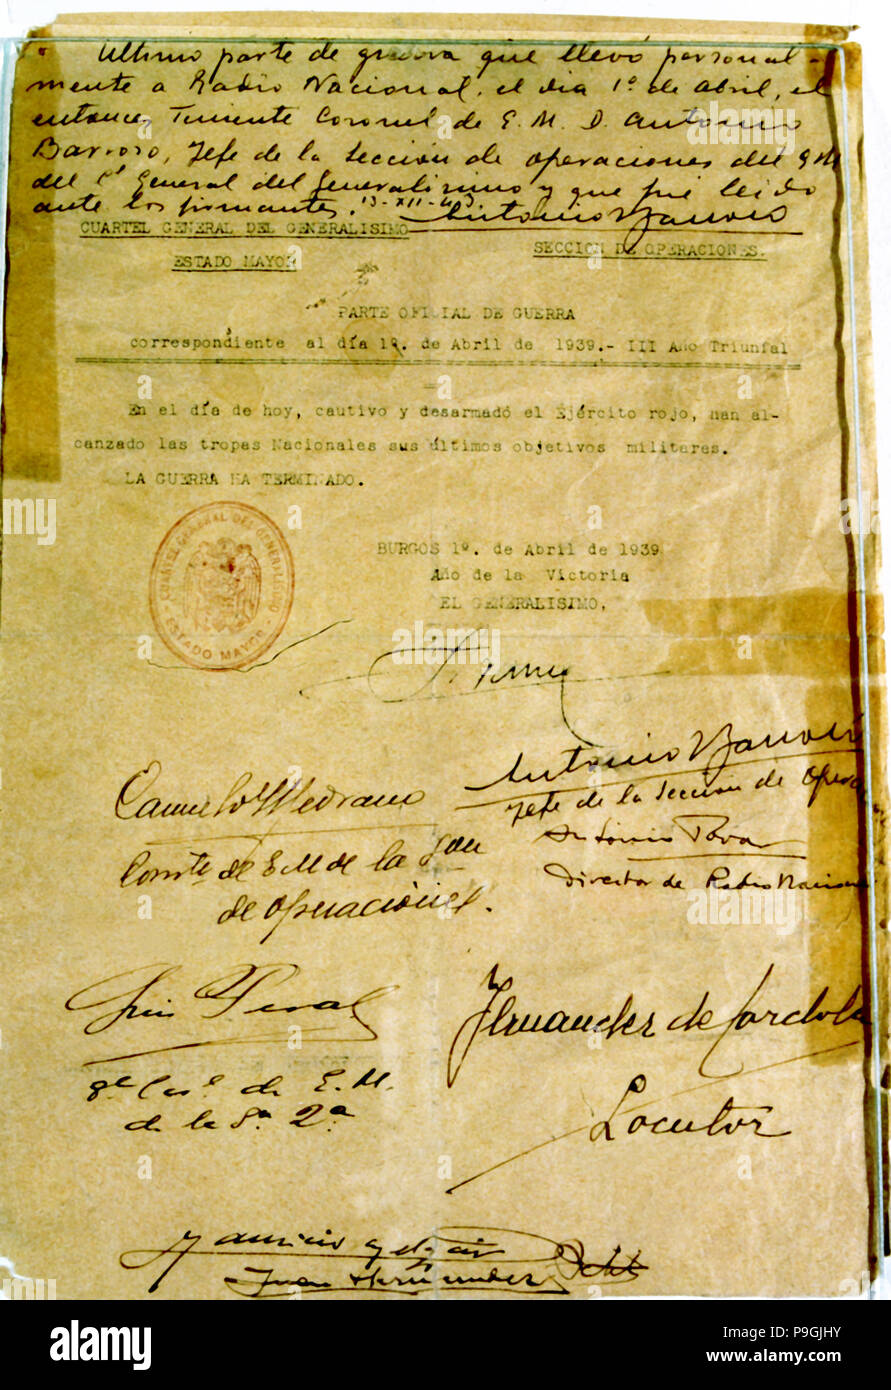 Ultimo parte de guerra que llevó personal-
mente a Radio Nacional, el dia 1º de abril, el
entonces Teniente Coronel de E. M. D. Antonio
Barroso, Jefe de la Sección de operaciones del E.M.
del C. General del Generalisimo y que fué leido
ante los firmantes. 13-XII-43. Antonio Barroso
CUARTEL GENERAL DEL GENERALISIMO
ESTADO MAYOR
SECCION DE OPERACIONES.
PARTE OFICIAL DE GUERRA
correspondiente al día 1º. de Abril de 1939.- III Año Triunfal
En el día de hoy, cautivo y desarmadó el Ejército rojo, han al-
canzado las tropas Nacionales sus últimos objetivos militares.
LA GUERRA HA TERMINADO.
CUARTEL GENERAL DEL GENERALISIMO
ESTADO MAYOR
BURGOS 1º. de Abril de 1939
Año de la Victoria
EL GENERALISIMO,
Antonio Barroso
Jefe de la Sección de Opera
Camilo Medrano
Comte de E M de la Són
de Operaciones.
Antonio Tovar
Director de Radio Nacional
Luis Peral
de E. M.
de la S.ª 2ª
Fernandez de Cordoba
Locutor
Juan Hernandez
alamy
Image ID: P9GJHY
www.alamy.com